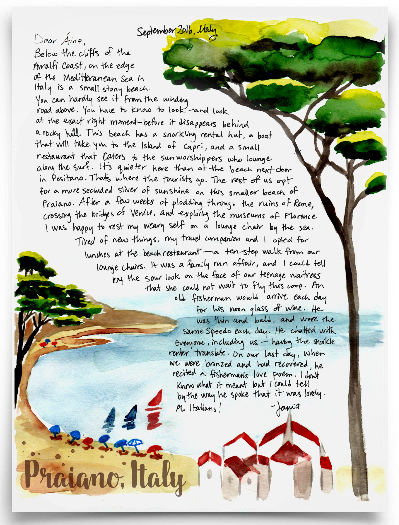 September 2016, Italy
Dear Anne,
Below the cliffs of the
Amalfi Coast, on the edge
of the Mediterranean Sea in
Italy is a small stony beach.
You can hardly see it from the winding
road above. You have to know to look—and look
at the exact right moment—before it disappears behind
a rocky hill. This beach has a snorkeling rental hut, a boat
that will take you to the Island of Capri, and a small
restaurant that caters to the sun worshippers who lounge
along the surf. It's quieter here than at the beach next door
in Positano. That's where the tourists go. The rest of us opt
for a more secluded sliver of sunshine on this smaller beach of
Praiano. After a few weeks of plodding through the ruins of Rome,
crossing the bridges of Venice, and exploring the museums of Florence
I was happy to rest my weary self on a lounge chair by the sea.
Tired of new things, my travel companion and I opted for
lunches at the beach restaurant—a ten-step walk from our
lounge chairs. It was a family run affair, and I could tell
by the sour look on the face of our teenage waitress
that she could not wait to fly this coop. An
old fisherman would arrive each day
for his noon glass of wine. He
was thin and bald, and wore the
same Speedo each day. He chatted with
everyone, including us—having the snorkle
renter translate. On our last day, when
we were bronzed and had recovered, he
recited a fisherman's love poem. I don't
know what it meant but I could tell
by the way he spoke that it was lovely.
Ah Italians!
Praiano, Italy